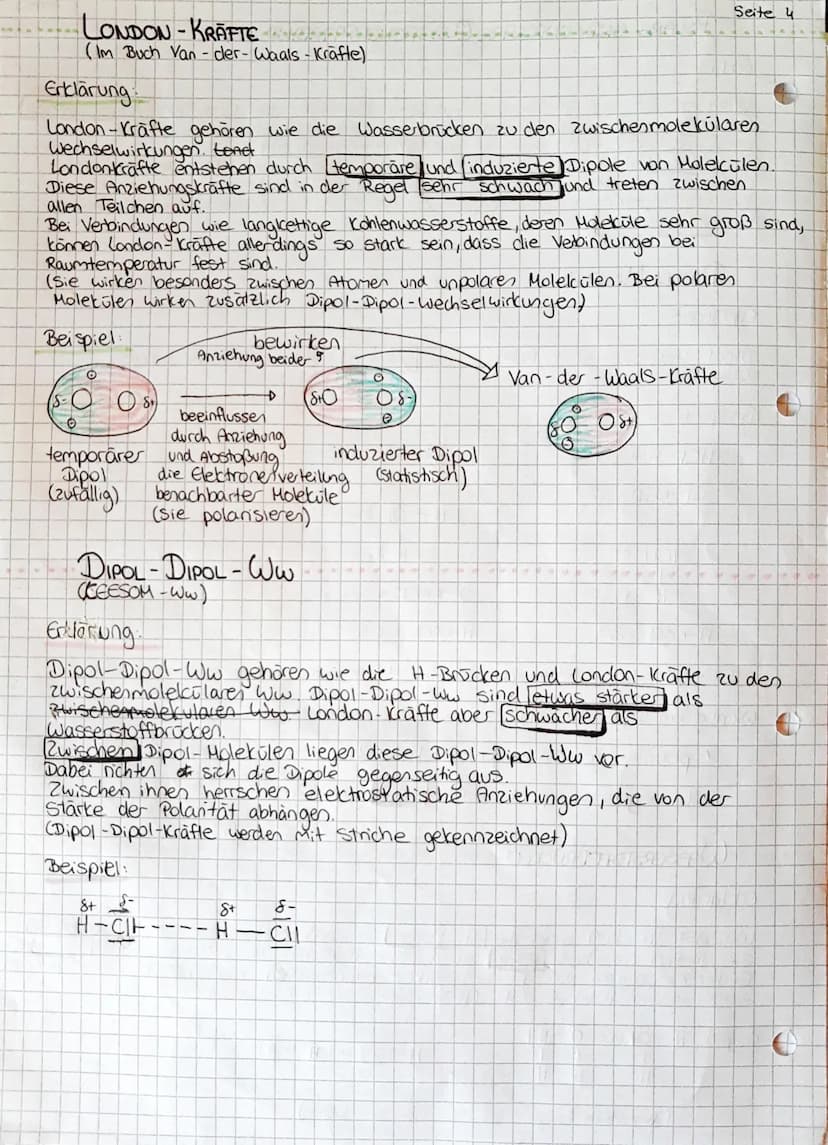 Seite 4
LONDON-KRÄFTE
(Im Buch Van-der-Waals-Kräfte)
Erklärung:
London-Kräfte gehören wie die Wasserbrücken zu den zwischenmolekularen
Wechselwirkungen.
Londonkräfte entstehen durch temporäre und induzierte Dipole von Molekülen.
Diese Anziehungskräfte sind in der Regel sehr schwach und treten zwischen
allen Teilchen auf.
Bei Verbindungen wie langkettige Kohlenwasserstoffe, deren Moleküle sehr groß sind,
können London-Kräfte allerdings so stark sein, dass die Verbindungen bei
Raumtemperatur fest sind.
(Sie wirken besonders zwischen Atomen und unpolaren Molekülen. Bei polaren
Molekülen wirken zusätzlich Dipol-Dipol-Wechselwirkungen)
Beispiel:
bewirken
Anziehung beider
Van-der-Waals-Kräfte
δ- δ+
δ+ δ-
δ- δ+
beeinflussen
durch Anziehung
und Abstoßung
die Elektronenverteilung
benachbarter Moleküle
(sie polarisieren)
temporärer
Dipol
(zufällig)
induzierter Dipol
(statistisch)
DIPOL-DIPOL-WW
(KEESOM-WW)
Erklärung:
Dipol-Dipol-Ww gehören wie die H-Brücken und London-Kräfte zu den
zwischenmolekularen Ww. Dipol-Dipol-Ww sind etwas stärker als
zwischenmolekularen Ww London-Kräfte aber schwächer als
Wasserstoffbrücken.
Zwischen Dipol-Molekülen liegen diese Dipol-Dipol-Ww vor.
Dabei richten sich die Dipole gegenseitig aus.
Zwischen ihnen herrschen elektrostatische Anziehungen, die von der
Stärke der Polarität abhängen.
(Dipol-Dipol-Kräfte werden mit Striche gekennzeichnet)
Beispiel:
δ+ δ- δ+ δ-
H-Cl|----H—Cl|